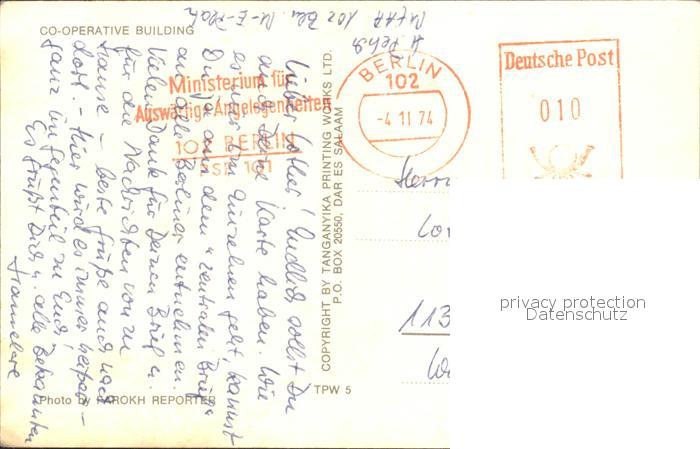 CO-OPERATIVE BUILDING
Lieber Lother! Endlich sollst Du
auch Deine Karte haben. Wie
es hier im Einzelnen geht, kannst
Du ja aus dem "zentralen Brief"
an alle Berliner entnehmen.
Vielen Dank für Deinen Brief u.
für die Nachrichten von zu
Hause – beste Grüße auch nach
dort. – Hier wird es immer heißer –
ganz im Gegenteil zu Euch!
Es grüßt Dich u. alle Bekannten
Hannelore
Photo by FAROKH REPORTER
COPYRIGHT BY TANGANYIKA PRINTING WORKS LTD.
P.O. BOX 20550, DAR ES SALAAM
TPW 5
MfAA 102 Bln.
Ministerium für
Auswärtige Angelegenheiten
102 BERLIN
PSF 101
BERLIN
102
-4.11.74
Deutsche Post
010
Herrn
113
privacy protection
Datenschutz